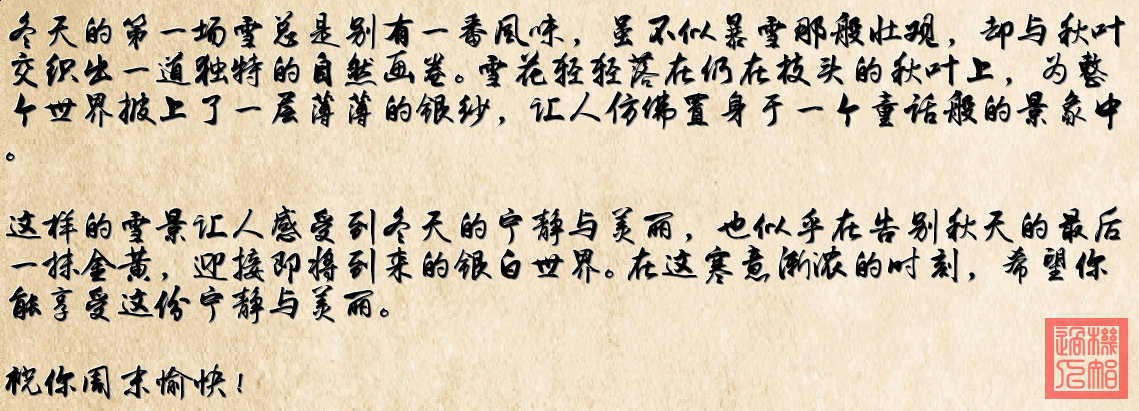 冬天的第一场雪总是别有一番风味，虽不似暴雪那般壮观，却与秋叶
交织出一道独特的自然画卷。雪花轻轻落在仍在枝头的秋叶上，为整
个世界披上了一层薄薄的银纱，让人仿佛置身于一个童话般的景象中
。
这样的雪景让人感受到冬天的宁静与美丽，也似乎在告别秋天的最后
一抹金黄，迎接即将到来的银白世界。在这寒意渐浓的时刻，希望你
能享受这份宁静与美丽。
祝你周末愉快！